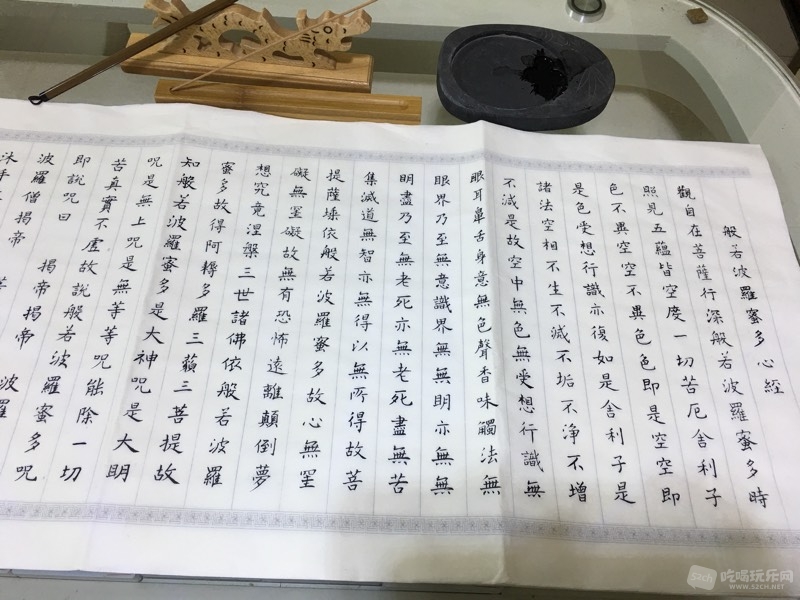 般若波羅蜜多心經
觀自在菩薩行深般若波羅蜜多時
照見五蘊皆空度一切苦厄舍利子
色不異空空不異色色即是空空即
是色受想行識亦復如是舍利子是
諸法空相不生不滅不垢不淨不增
不減是故空中無色無受想行識無
眼耳鼻舌身意無色聲香味觸法無
眼界乃至無意識界無無明亦無無
明盡乃至無老死亦無老死盡無苦
集滅道無智亦無得以無所得故菩
提薩埵依般若波羅蜜多故心無罣
礙無罣礙故無有恐怖遠離顛倒夢
想究竟涅槃三世諸佛依般若波羅
蜜多故得阿耨多羅三藐三菩提故
知般若波羅蜜多是大神咒是大明
咒是無上咒是無等等咒能除一切
苦真實不虛故說般若波羅蜜多咒
即說咒曰 揭帝揭帝 波羅
波羅僧揭帝 菩
沐手
吃喝玩乐网
WWW.SZCH.NET